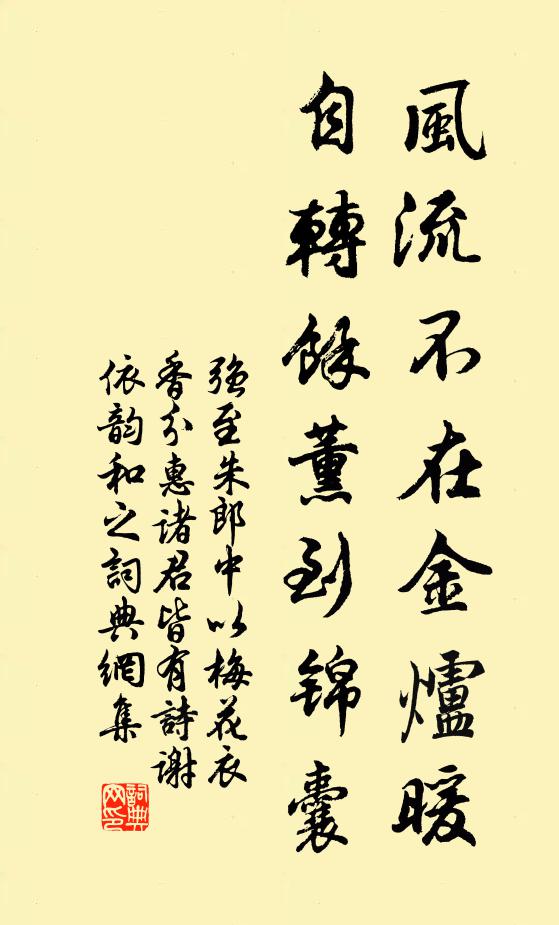 風流不在金爐暖
自轉餘薰到锦囊
强至朱郎中以梅花衣
香分惠诸君皆有詩謝
依韵和之詞典網集
詞典
网印